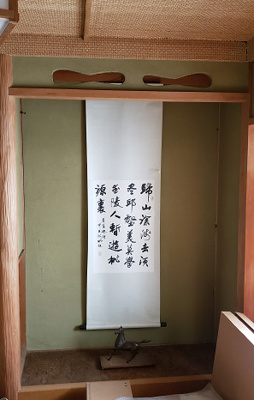 歸山深淺去須
盡邱壑美莫學
武陵人暫遊桃
源裏